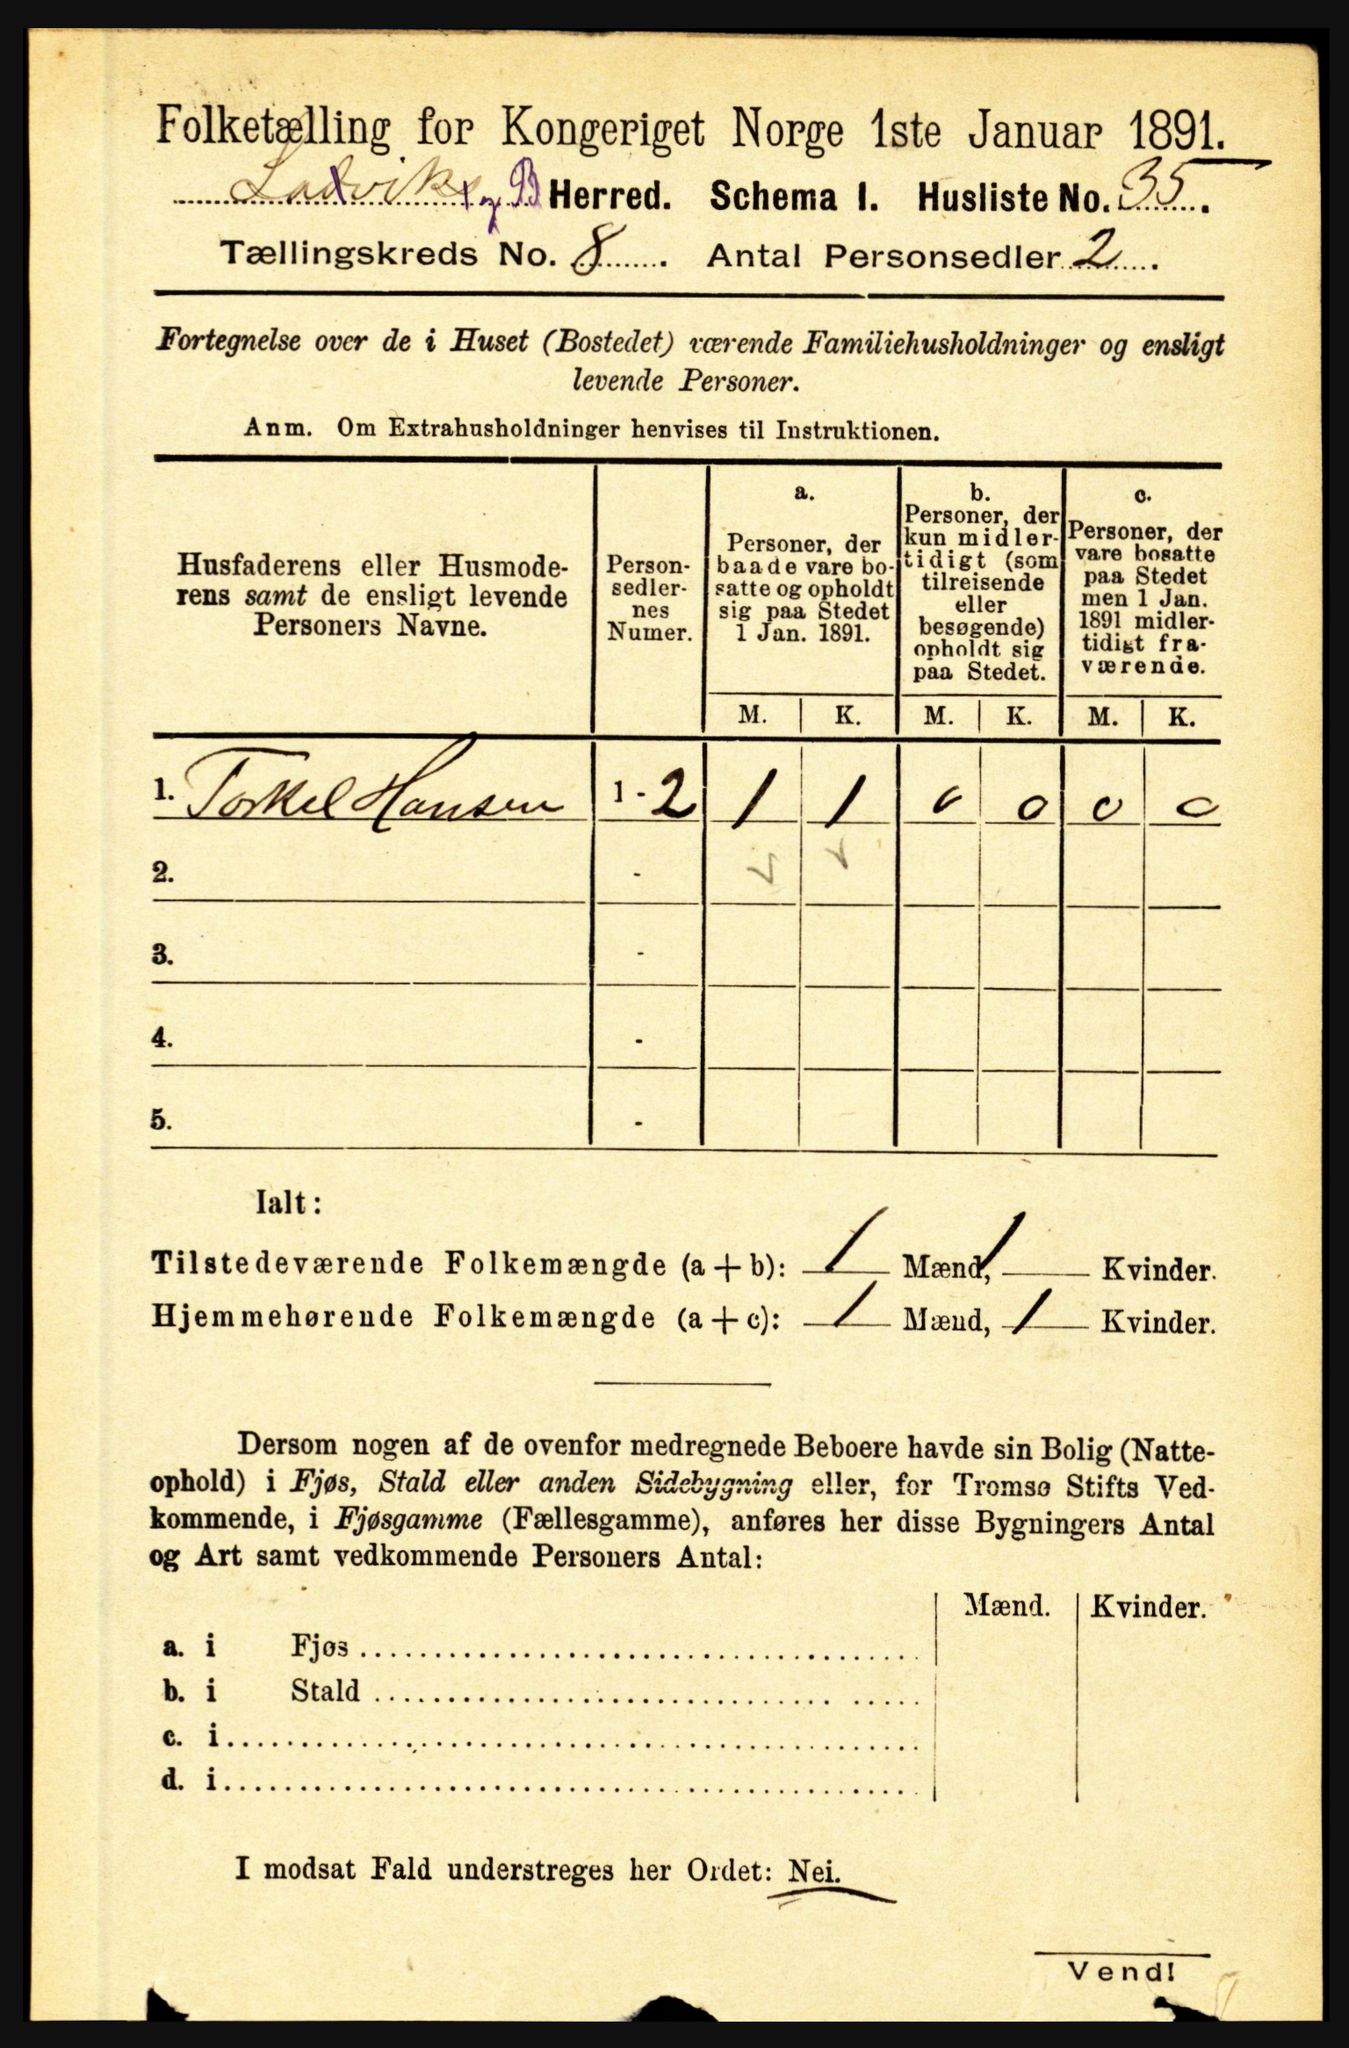 Folketælling for Kongeriget Norge 1ste Januar 1891.
Ladvik og B Herred. Schema I. Husliste No. 35.
Tællingskreds No. 8. Antal Personsedler 2.
Fortegnelse over de i Huset (Bostedet) værende Familiehusholdninger og ensligt
levende Personer.
Anm. Om Extrahusholdninger henvises til Instruktionen.
Husfaderens eller Husmode-
rens samt de ensligt levende
Personers Navne.
Person-
sedler-
nes
Numer.
a.
Personer, der
baade vare bo-
satte og opholdt
sig paa Stedet
1 Jan. 1891.
b.
Personer, der
kun midler-
tidigt (som
tilreisende
eller
besøgende)
opholdt sig
paa Stedet.
c.
Personer, der
vare bosatte
paa Stedet
men 1 Jan.
1891 midler-
tidigt fra-
værende.
M. K. M. K. M. K.
1. Torkel Hansen 1 - 2 1 1 0 0 0 0
2. -
3. -
4. -
5. -
Ialt:
Tilstedeværende Folkemængde (a + b): 1 Mænd, 1 Kvinder.
Hjemmehørende Folkemængde (a + c): 1 Mænd, 1 Kvinder.
Dersom nogen af de ovenfor medregnede Beboere havde sin Bolig (Natte-
ophold) i Fjøs, Stald eller anden Sidebygning eller, for Tromsø Stifts Ved-
kommende, i Fjøsgamme (Fællesgamme), anføres her disse Bygningers Antal
og Art samt vedkommende Personers Antal:
Mænd. Kvinder.
a. i Fjøs
b. i Stald
c. i
d. i
I modsat Fald understreges her Ordet: Nei.
Vend!